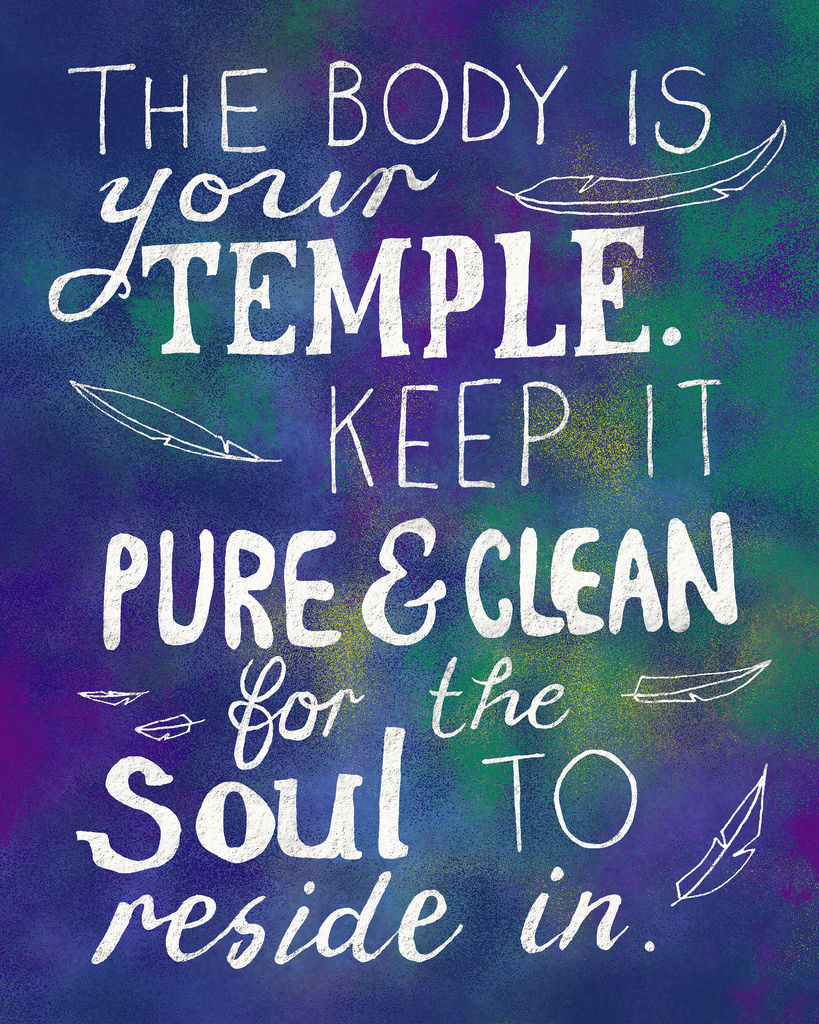 THE BODY IS
your
TEMPLE.
KEEP IT
PURE & CLEAN
for the
Soul TO
reside in.